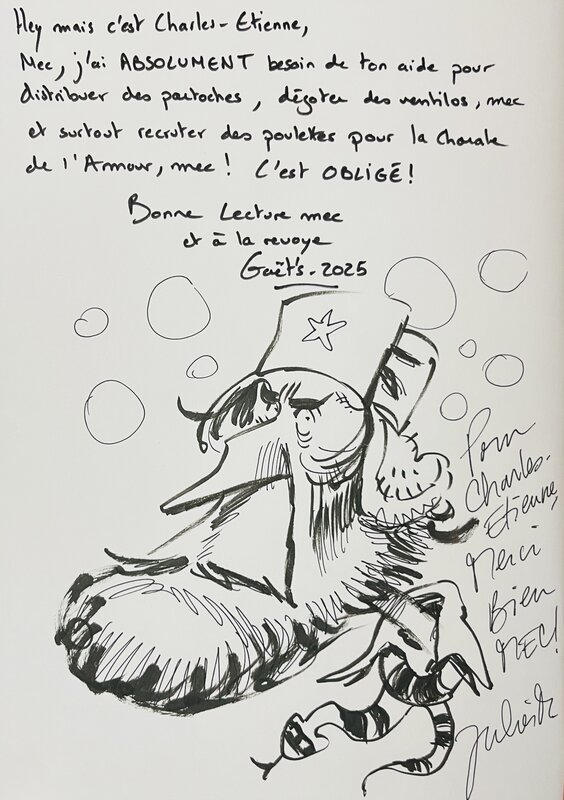 Hey mais c'est Charles-Etienne,
Mec, j'ai ABSOLUMENT besoin de ton aide pour
distribuer des partoches, dégoter des ventilos, mec
et surtout recruter des poulettes pour la chorale
de l'Amour, mec ! C'est OBLIGÉ !
Bonne Lecture mec
et à la revoye
Gaët's-2025
Pour
Charles-
Etienne,
Merci
Bien
MEC!